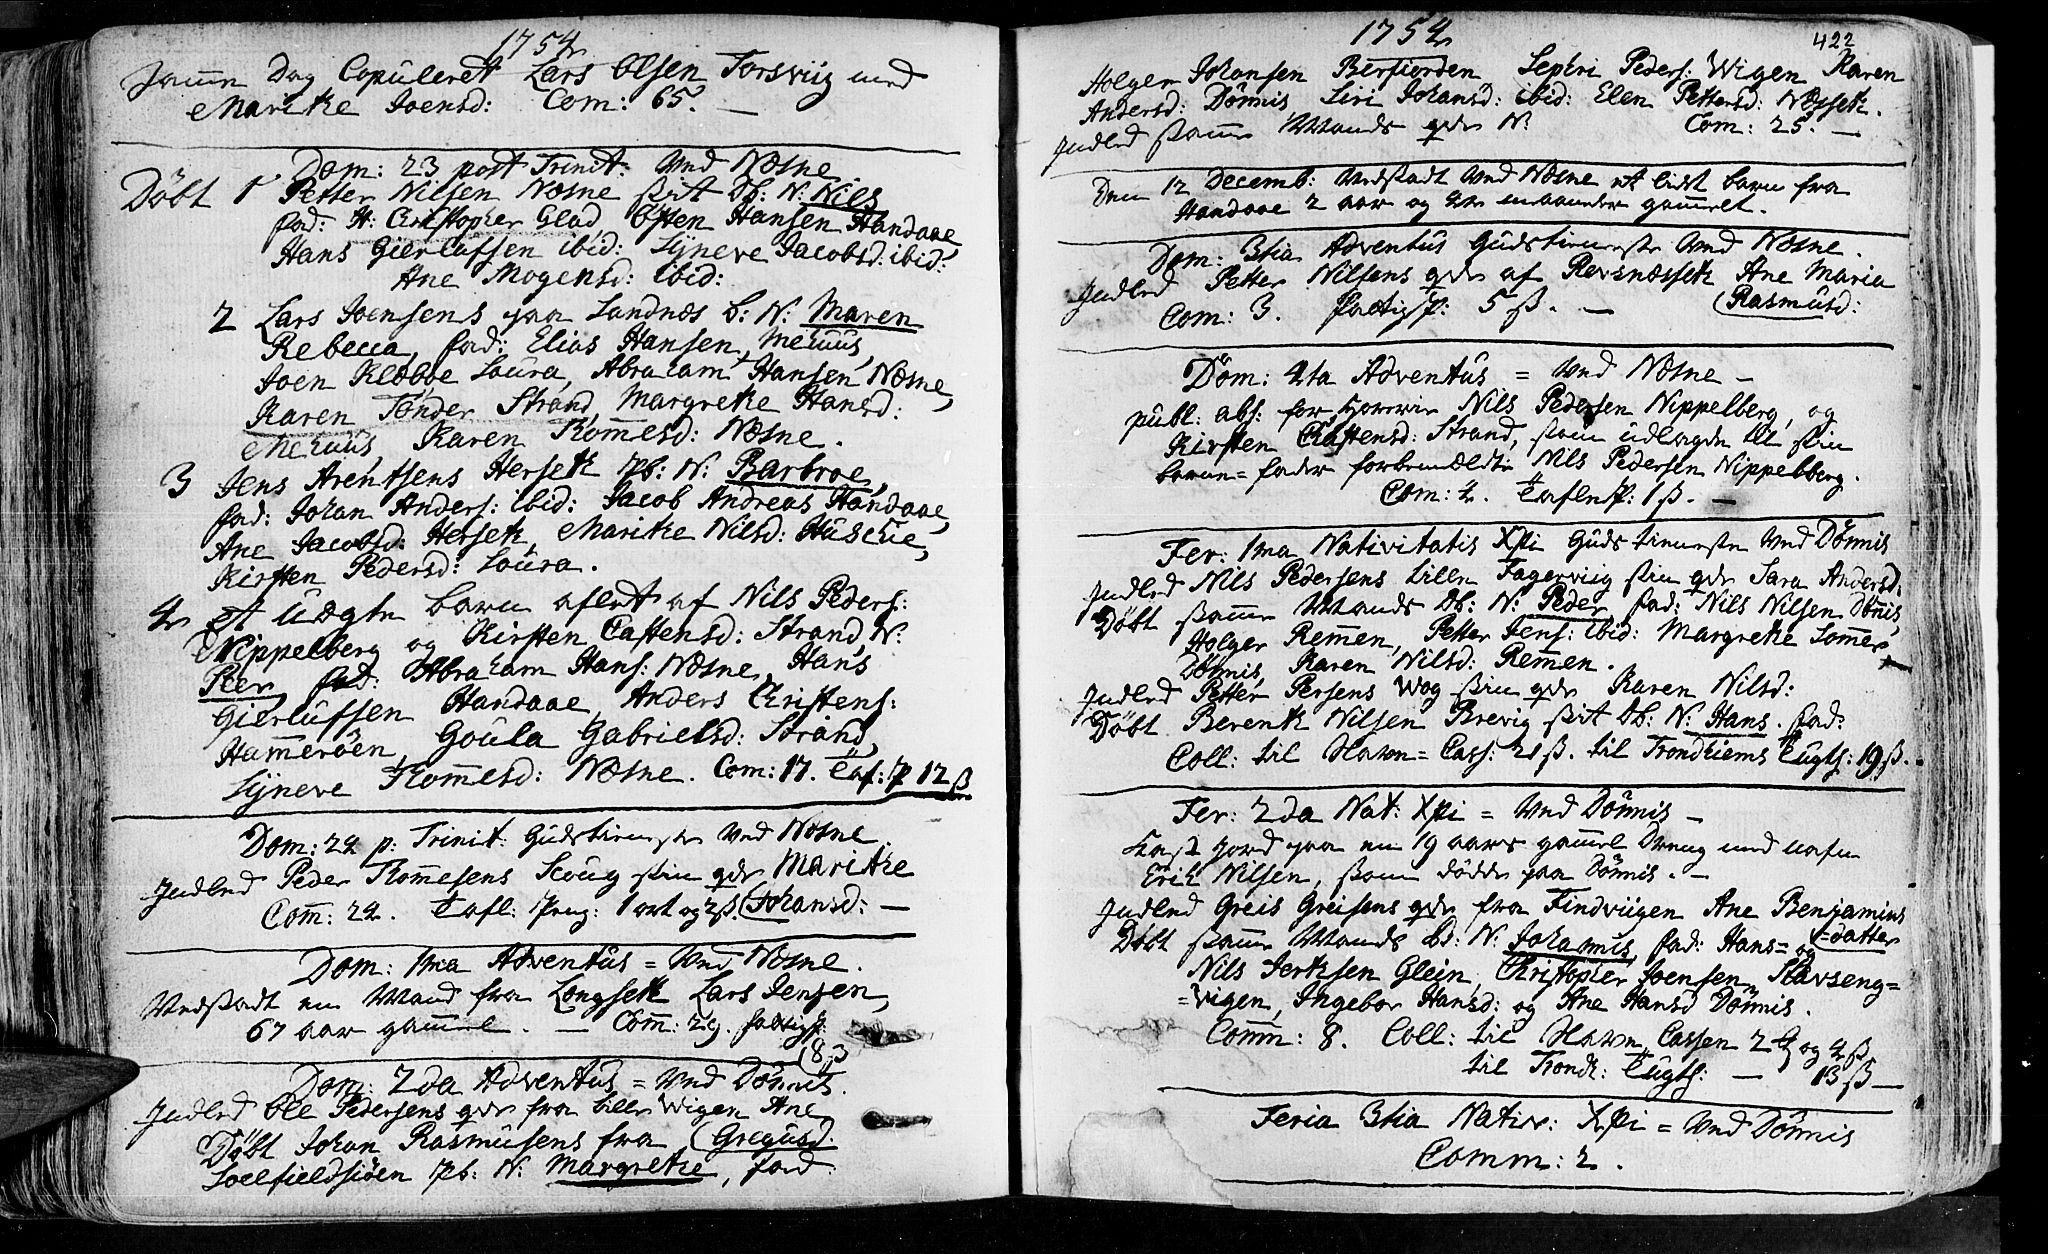 1754
Samme Dag Copuleret Lars Olsen Forsviig med
Maritke Joensd: Com: 65. —
Dom: 23 post Trinit: Ved Næsne.
Døbt 1 Petter Nilsen Næsne sit db: N: Nils
fad: H: Christopher Glad, Østen Hansen Handaae,
Hans Gierlufsen ibid: Lyneve Jacobsd: ibid:
Ane Mogensd: ibid:
2 Lars Joensens paa Landnæs b: N: Maren
Rebecca, fad: Elias Hansen
Joen Klobbe Loüra, Abraham Hansen Næsne,
Karen Tønder Strand, Margreke Hansd:
Karen Tommesd: Næsne.
3 Jens Arentsens Hersetk pb: N: Barbroe,
fad: Johan Anders: ibid: Jacob Andreas Handaae,
Ane Jacobsd: Hersetk, Maritke Nilsd: Hüsbye,
Kirsten Pedersd: Loüra.
4 et Uægte barn aflet af Nils Peders:
Nippelberg og Kirsten Castensd: Strand N:
Peer fad: Abraham Hans: Næsne, Hans
Gierlufsen Handaae, Anders Christens:
Hammerøen, Goüla Gabrielsd: Strand,
Lyneve Tommesd: Næsne. Com: 17. Taf: p 12 ß
Dom: 24 p: Trinit: Gudstieneste Ved Næsne.
Indled Peder Tommesens Scoug sin qde Maritke
Com: 24. Tafl: Peng: 1 ort og 2 ß. (Johansd: —
Dom: 1ma Adventus = Ved Næsne.
Vedstadt en Mand fra Longsetk Lars Jensen,
67 aar gammel. — Com: 29. fattigp:
(8 ß
Dom: 2da Adventus = Ved Dønnis.
Indled Ole Pedersens qde fra lille Wigen Ane
Døbt Johan Rasmusens fra (Gregusd.
Soelfieldsiøen pb: N: Margretke, fad:
1754 422
Holger Johansen Berfiorden Sephri Peders: Wigen Karen
Andersd: Dønnis Siri Johansd: ibid: Elen Pettersd: Næssetk.
Indled samme Mands qde N. Com: 25. —
Den 12 Decemb: Vedstadt Ved Næsne et lidet barn fra
Handaae 2 aar og 4re maaneder gammelt.
Dom: 3tia Adventus Gudstieneste Ved Næsne.
Indled Petter Nilsens qde af Revsnæssetk Ane Maria
Com: 3. fattigp: 5 ß. — (Rasmusd:
Dom: 4ta Adventus = Ved Næsne —
publ: abs: for Horerie Nils Pedersen Nippelberg, og
Kirsten Castensd: Strand, som udlagde til sin
barne=fader forbemældte Nils Pedersen Nippelberg.
Com: 4. Taflep: 1 ß. —
Fer: 1ma Nativitatis Xpi Guds tieneste Ved Dønnis
Indled Nils Pedersens lille Fagerviig sin qde Sara Andersd:
Døbt samme Mands db: N: Peder, fad: Nils Nilsen Dønnis,
Holger Remmen, Petter Jens: ibid: Margreke Sommer
Dønnis, Karen Nilsd: Remmen.
Indled Petter Persens Wog sin qde Karen Nilsd:
Døbt Berentk Nilsen Brevig sit db: N: Hans. fad:
Coll: til Havn=Cass: 21 ß. til Trondhiems Tugts: 19 ß.
Fer: 2da Nat: Xpi = Ved Dønnis —
Kast Jord paa en 19 aars gammel Dreng med nafn
Erik Nilsen, som døde paa Dønnis. —
Indled Greis Greisens qde fra Findviigen Ane Benjamins
Døbt samme Mands bd: N: Johannis, fad: Hans= og (=datter
Nils Jertksen Glein, Christopher Joensen Stavseng=
=vigen, Ingebor Hansd: og Ane Hansd Dønnis.
Comm: 8. Coll: til Havn Cassen 2 # og 4 ß
til Trondh: Tugts: — 13 ß —
Feria 3tia Nativ: Xpi = Ved Dønnis
Comm: 2.